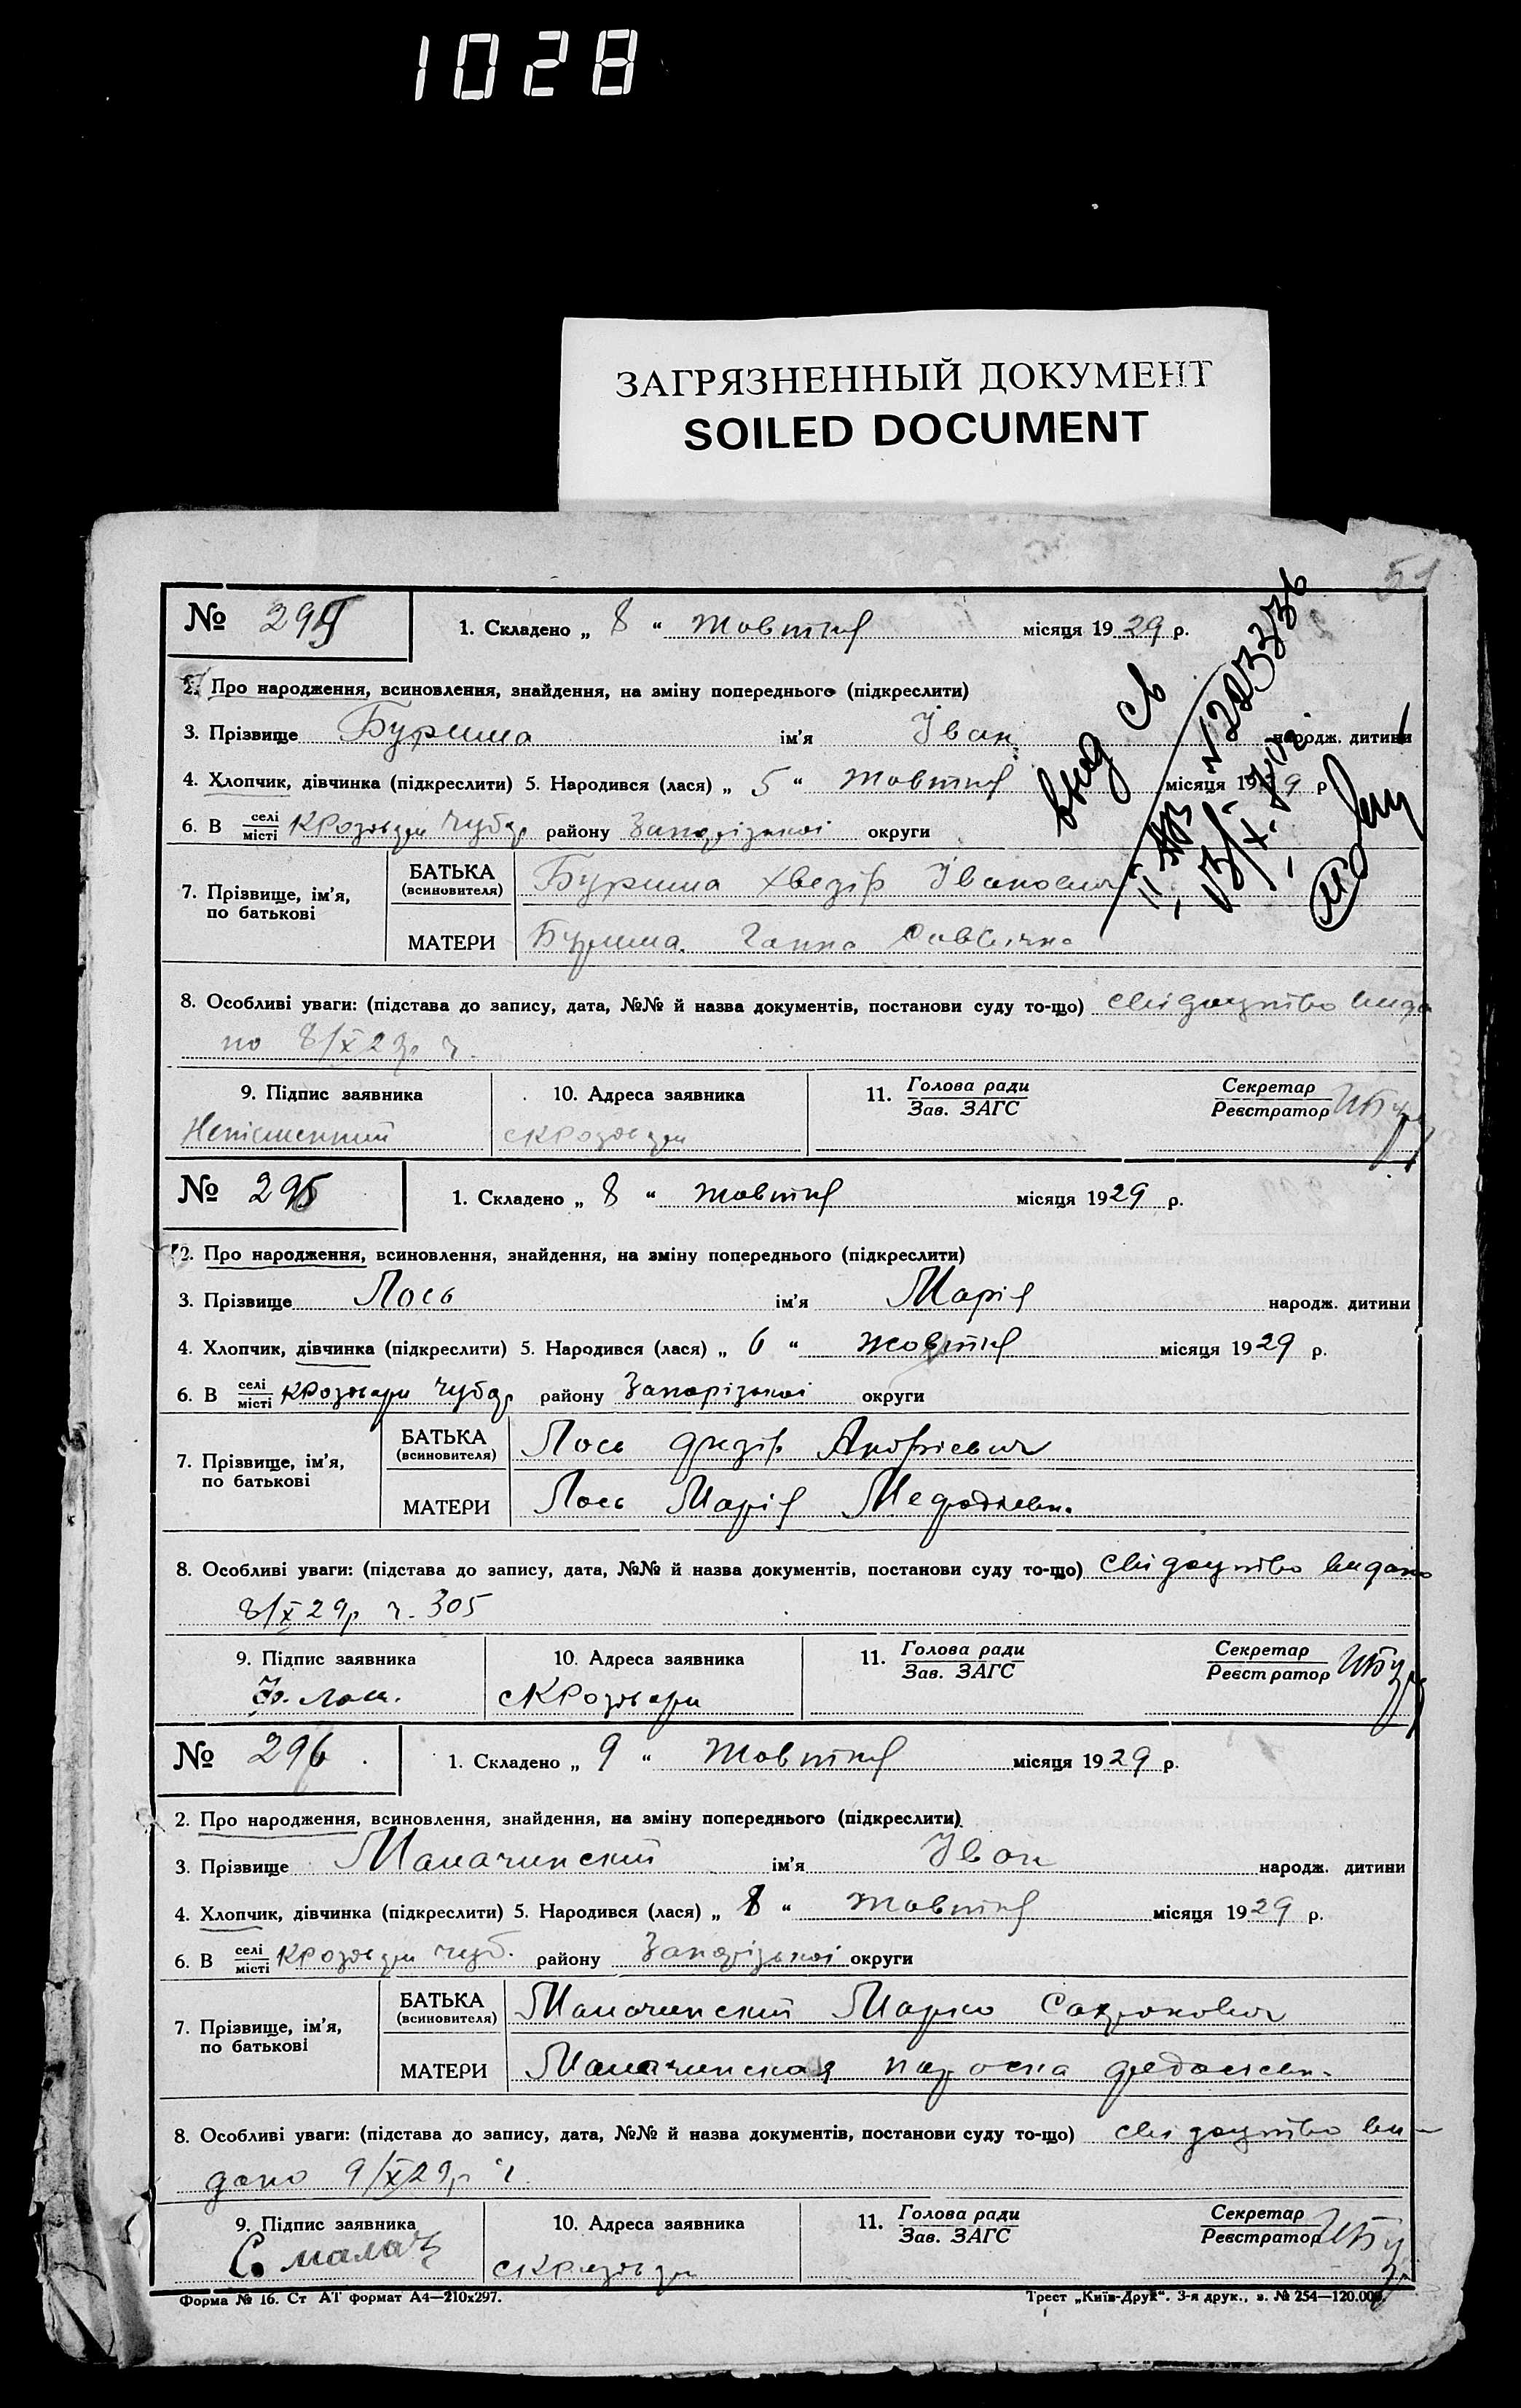 1028
ЗАГРЯЗНЕННЫЙ ДОКУМЕНТ
SOILED DOCUMENT
51
№ 294 1. Складено „ 8 “ Жовтня місяця 1929 р.
2. Про народження, всиновлення, знайдення, на зміну попереднього (підкреслити)
3. Прізвище Буряма ім’я Іван народж. дитини
4. Хлопчик, дівчинка (підкреслити) 5. Народився (лася) „ 5 “ Жовтня місяця 1929 р
6. В селі місті К Роздори Чубар району Запорізької округи
7. Прізвище, ім’я, по батькові
БАТЬКА (всиновителя) Хведір Іванович
МАТЕРИ Ганна Саввична
8. Особливі уваги: (підстава до запису, дата, №№ й назва документів, постанови суду то-що) свідоцтво вида
но 8/X 29р ч.
9. Підпис заявника 10. Адреса заявника 11. Голова ради Зав. ЗАГС Секретар Реєстратор
Неписьменний с К Роздори
№ 295 1. Складено „ 8 “ Жовтня місяця 1929 р.
2. Про народження, всиновлення, знайдення, на зміну попереднього (підкреслити)
3. Прізвище Лось ім’я Марія народж. дитини
4. Хлопчик, дівчинка (підкреслити) 5. Народився (лася) „ 6 “ жовтня місяця 1929 р.
6. В селі місті К Роздори Чубар району Запорізької округи
7. Прізвище, ім’я, по батькові
БАТЬКА (всиновителя) Лось Федір Андрієвич
МАТЕРИ Лось Марія
8. Особливі уваги: (підстава до запису, дата, №№ й назва документів, постанови суду то-що) свідоцтво видано
8/X 29р ч. 305
9. Підпис заявника 10. Адреса заявника 11. Голова ради Зав. ЗАГС Секретар Реєстратор
Ф. Лось. с К Роздори
№ 296 1. Складено „ 9 “ Жовтня місяця 1929 р.
2. Про народження, всиновлення, знайдення, на зміну попереднього (підкреслити)
3. Прізвище ім’я Іван народж. дитини
4. Хлопчик, дівчинка (підкреслити) 5. Народився (лася) „ 8 “ Жовтня місяця 1929 р.
6. В селі місті К Роздори Чуб. району Запорізької округи
7. Прізвище, ім’я, по батькові
БАТЬКА (всиновителя) Марко
МАТЕРИ
8. Особливі уваги: (підстава до запису, дата, №№ й назва документів, постанови суду то-що) свідоцтво ви-
дано 9/X 29р ч.
9. Підпис заявника 10. Адреса заявника 11. Голова ради Зав. ЗАГС Секретар Реєстратор
с К Роздори
Форма № 16. Ст АТ формат А4—210х297. Трест „Київ-Друк“. 3-я друк., з. № 254—120.000.